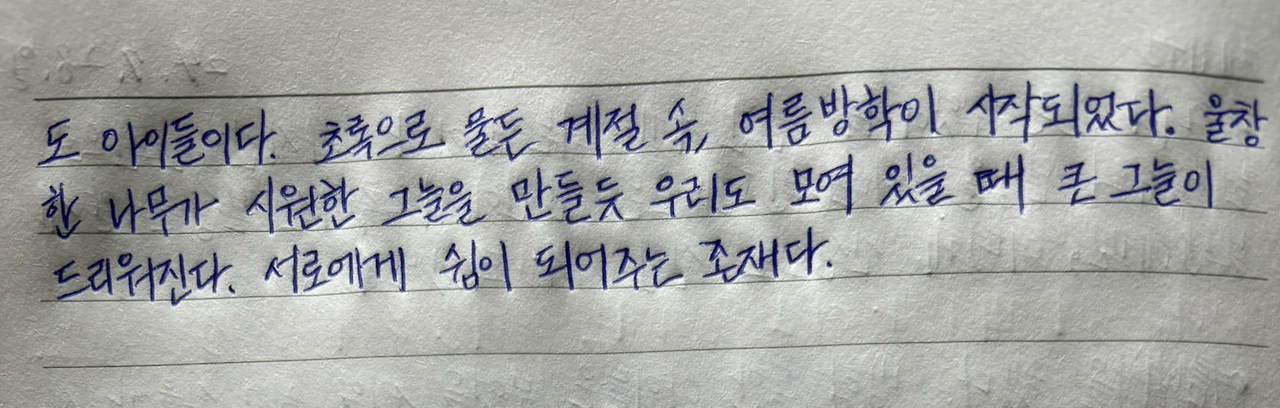 도 아이들이다. 초록으로 물든 계절 속, 여름방학이 시작되었다. 울창
한 나무가 시원한 그늘을 만들듯 우리도 모여 있을 때 큰 그늘이
드리워진다. 서로에게 쉼이 되어주는 존재다.